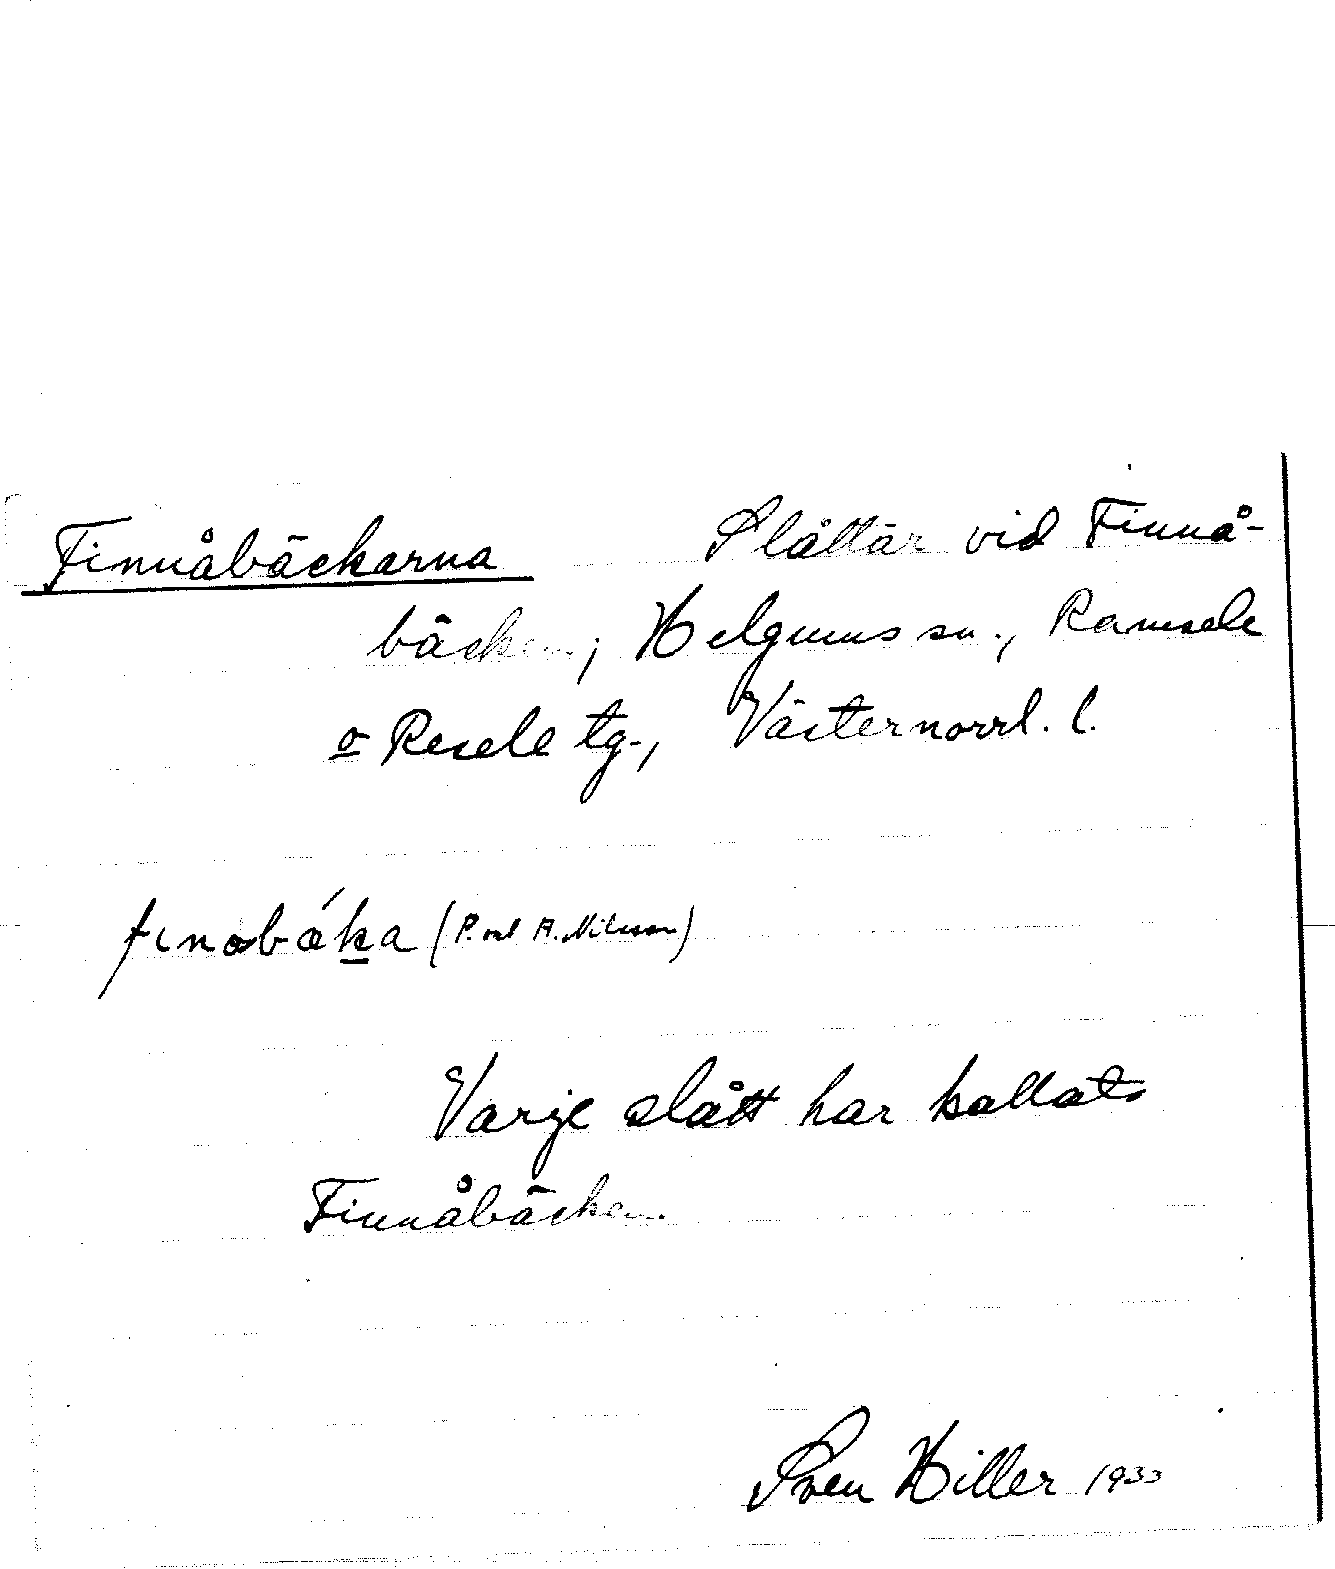 Finnåbäckarna Slåttar vid Finnå-
bäcken, Helgums sn., Ramsele
o Resele tg., Västernorrl. l.
finobǽka (P. A. Nilsson)
Varje slått har kallats
Finnåbäcken.
Sven Hiller 1933